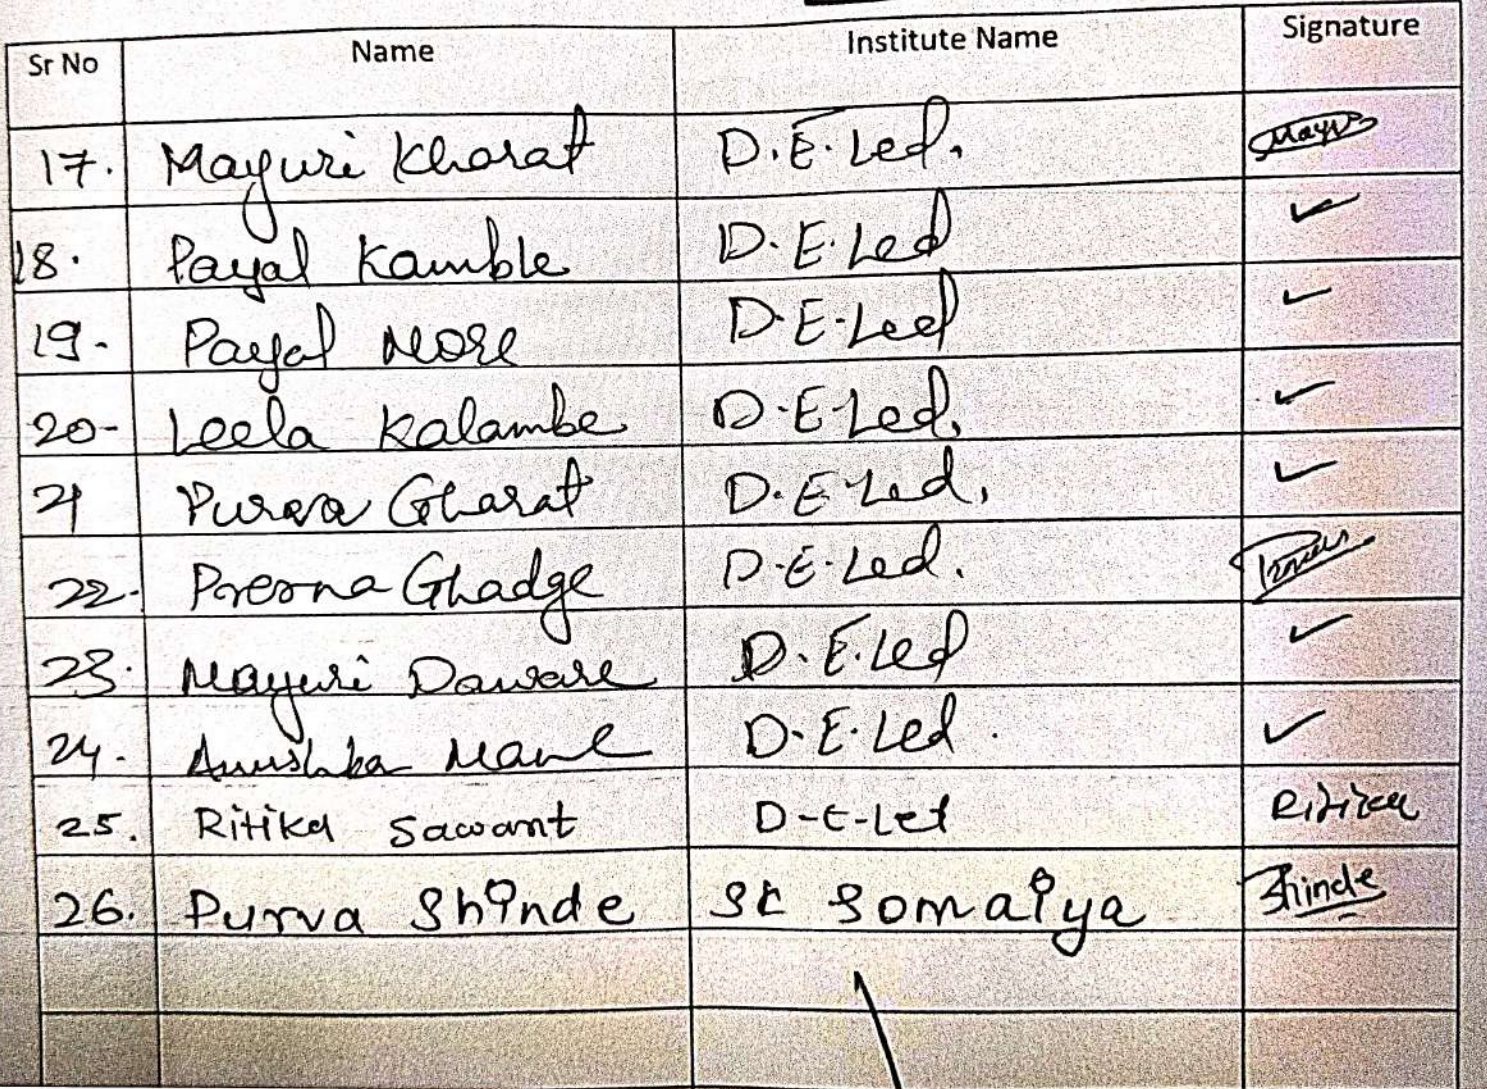 Sr No Name Institute Name Signature
17. Mayuri Kharat D.E.Led.
18. Payal Kamble D.E.Led
19. Payal More D.E.Led
20- Leela Kalambe D.E.Led.
21 Purva Gharat D.E.Led.
22. Prerna Ghadge D.E.Led.
23. Mayuri Daware D.E.Led
24. Anushka Mane D.E.Led.
25. Ritika Sawant D-E-Let Ritika
26. Purva Shinde SK Somaiya Shinde